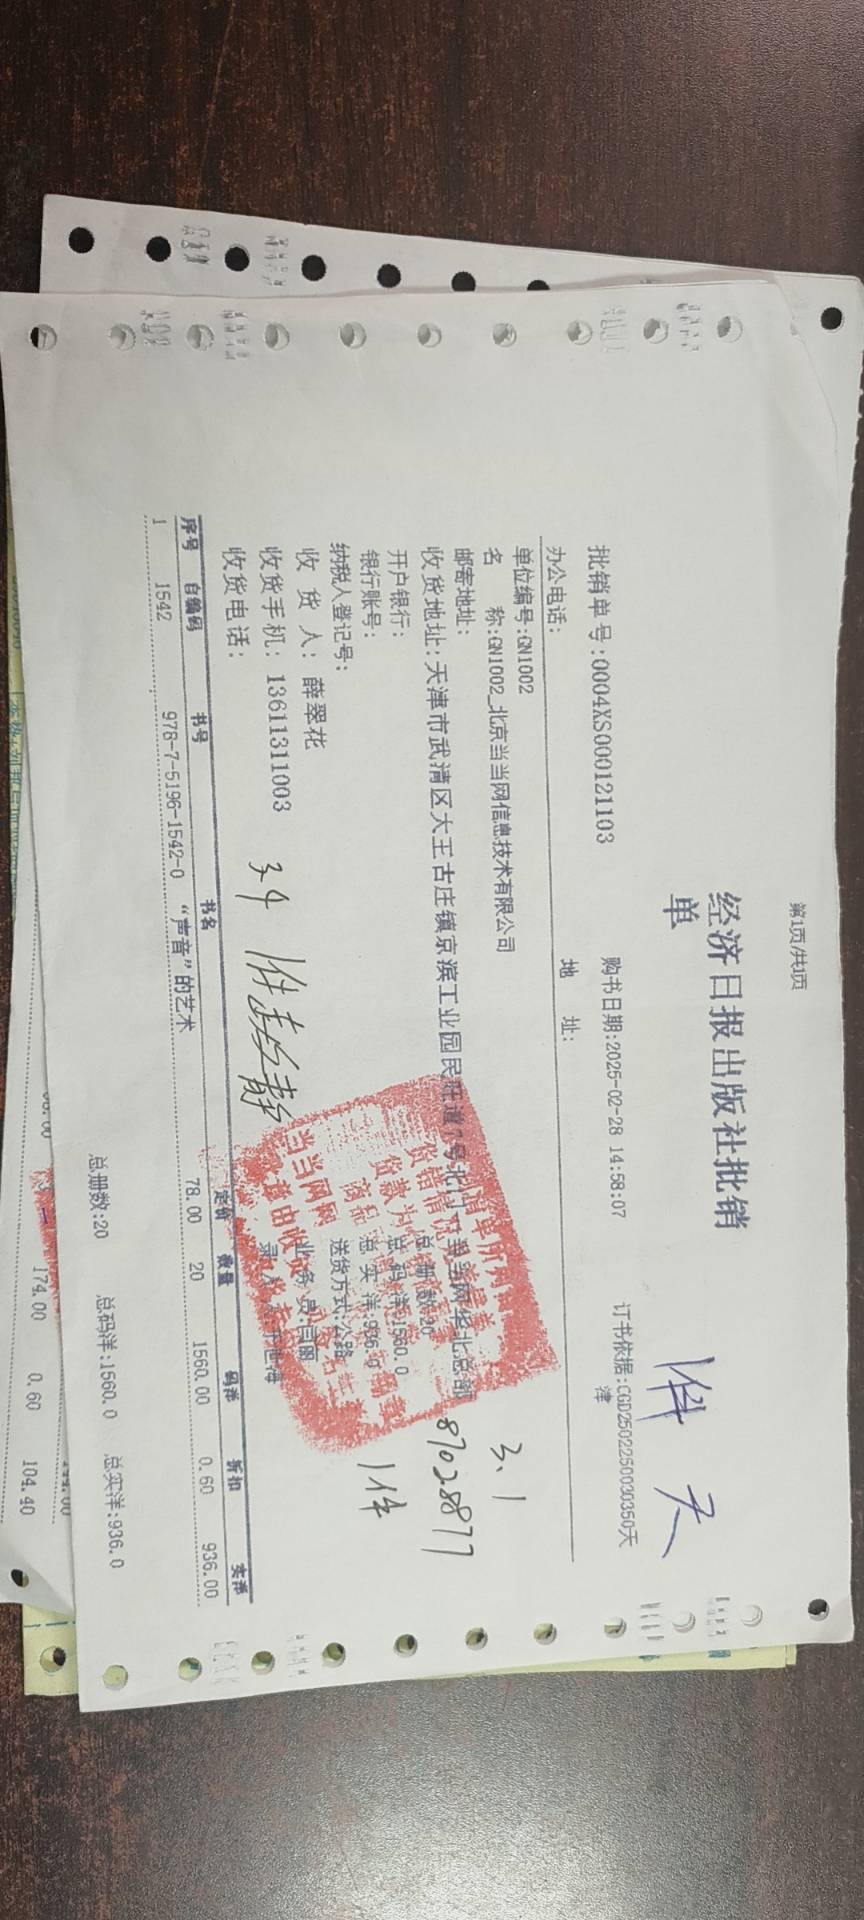 第1页/共1页
经济日报出版社批销
单
批销单号:0004XS000121103 购书日期:2025-02-28 14:58:07 订书依据:CGD2502250030350天
津
办公电话: 地 址:
单位编号:GN1002
名 称:GN1002_北京当当网信息技术有限公司
3.1
邮寄地址:
收货地址:天津市武清区大王古庄镇京滨工业园民旺道7号北门 当当网华北总部
87028877
开户银行: 总册数:20
银行账号: 总码洋:1560.0
纳税人登记号: 总实洋:936.0
1件
收 货 人: 薛翠花 送货方式:公路
收货手机: 13611311003 业务员:闫丽
收货电话:
3.4
当当网
序号 自编码 书号 书名 定价 数量 码洋 折扣 实洋
1 1542 978-7-5196-1542-0 “声音”的艺术 78.00 20 1560.00 0.60 936.00
总册数:20 总码洋:1560.0 总实洋:936.0
174.00 0.60 104.40